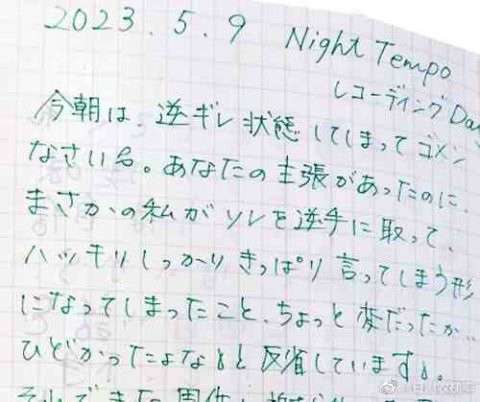 2023.5.9 Night Tempo
レコーディング Day
今朝は、逆ギレ状態してしまってゴメン
なさい。あなたの主張があったのに、
まさかの私がソレを逆手に取って、
ハッキリしっかりきっぱり言ってしまう形
になってしまったこと、ちょっと変だったか…
ひどかったよなぁと反省しています。